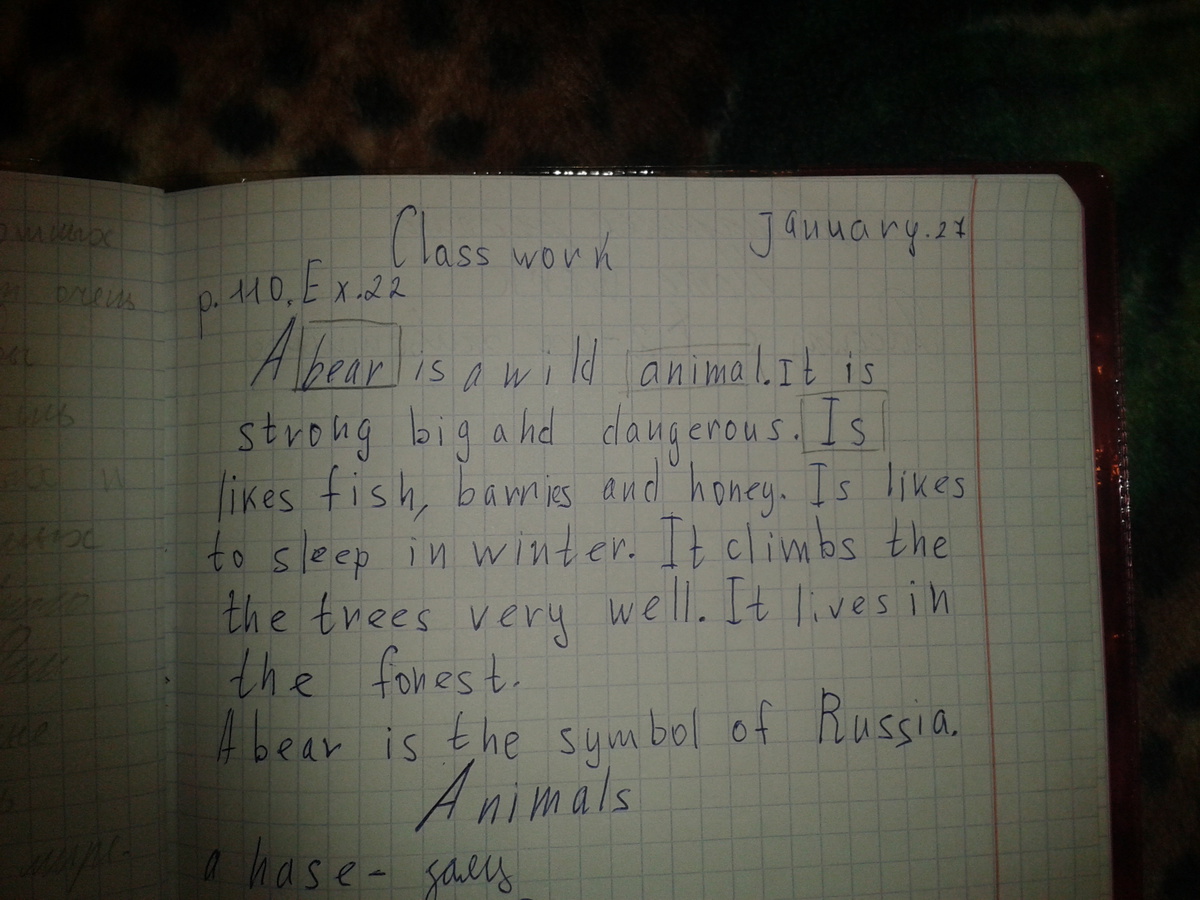 January.27
Class work
p.110.Ex.22
A bear is a wild animal. It is
strong big and dangerous. Is
likes fish, barries and honey. Is likes
to sleep in winter. It climbs the
the trees very well. It lives in
the forest.
A bear is the symbol of Russia.
Animals
a hase - заяц